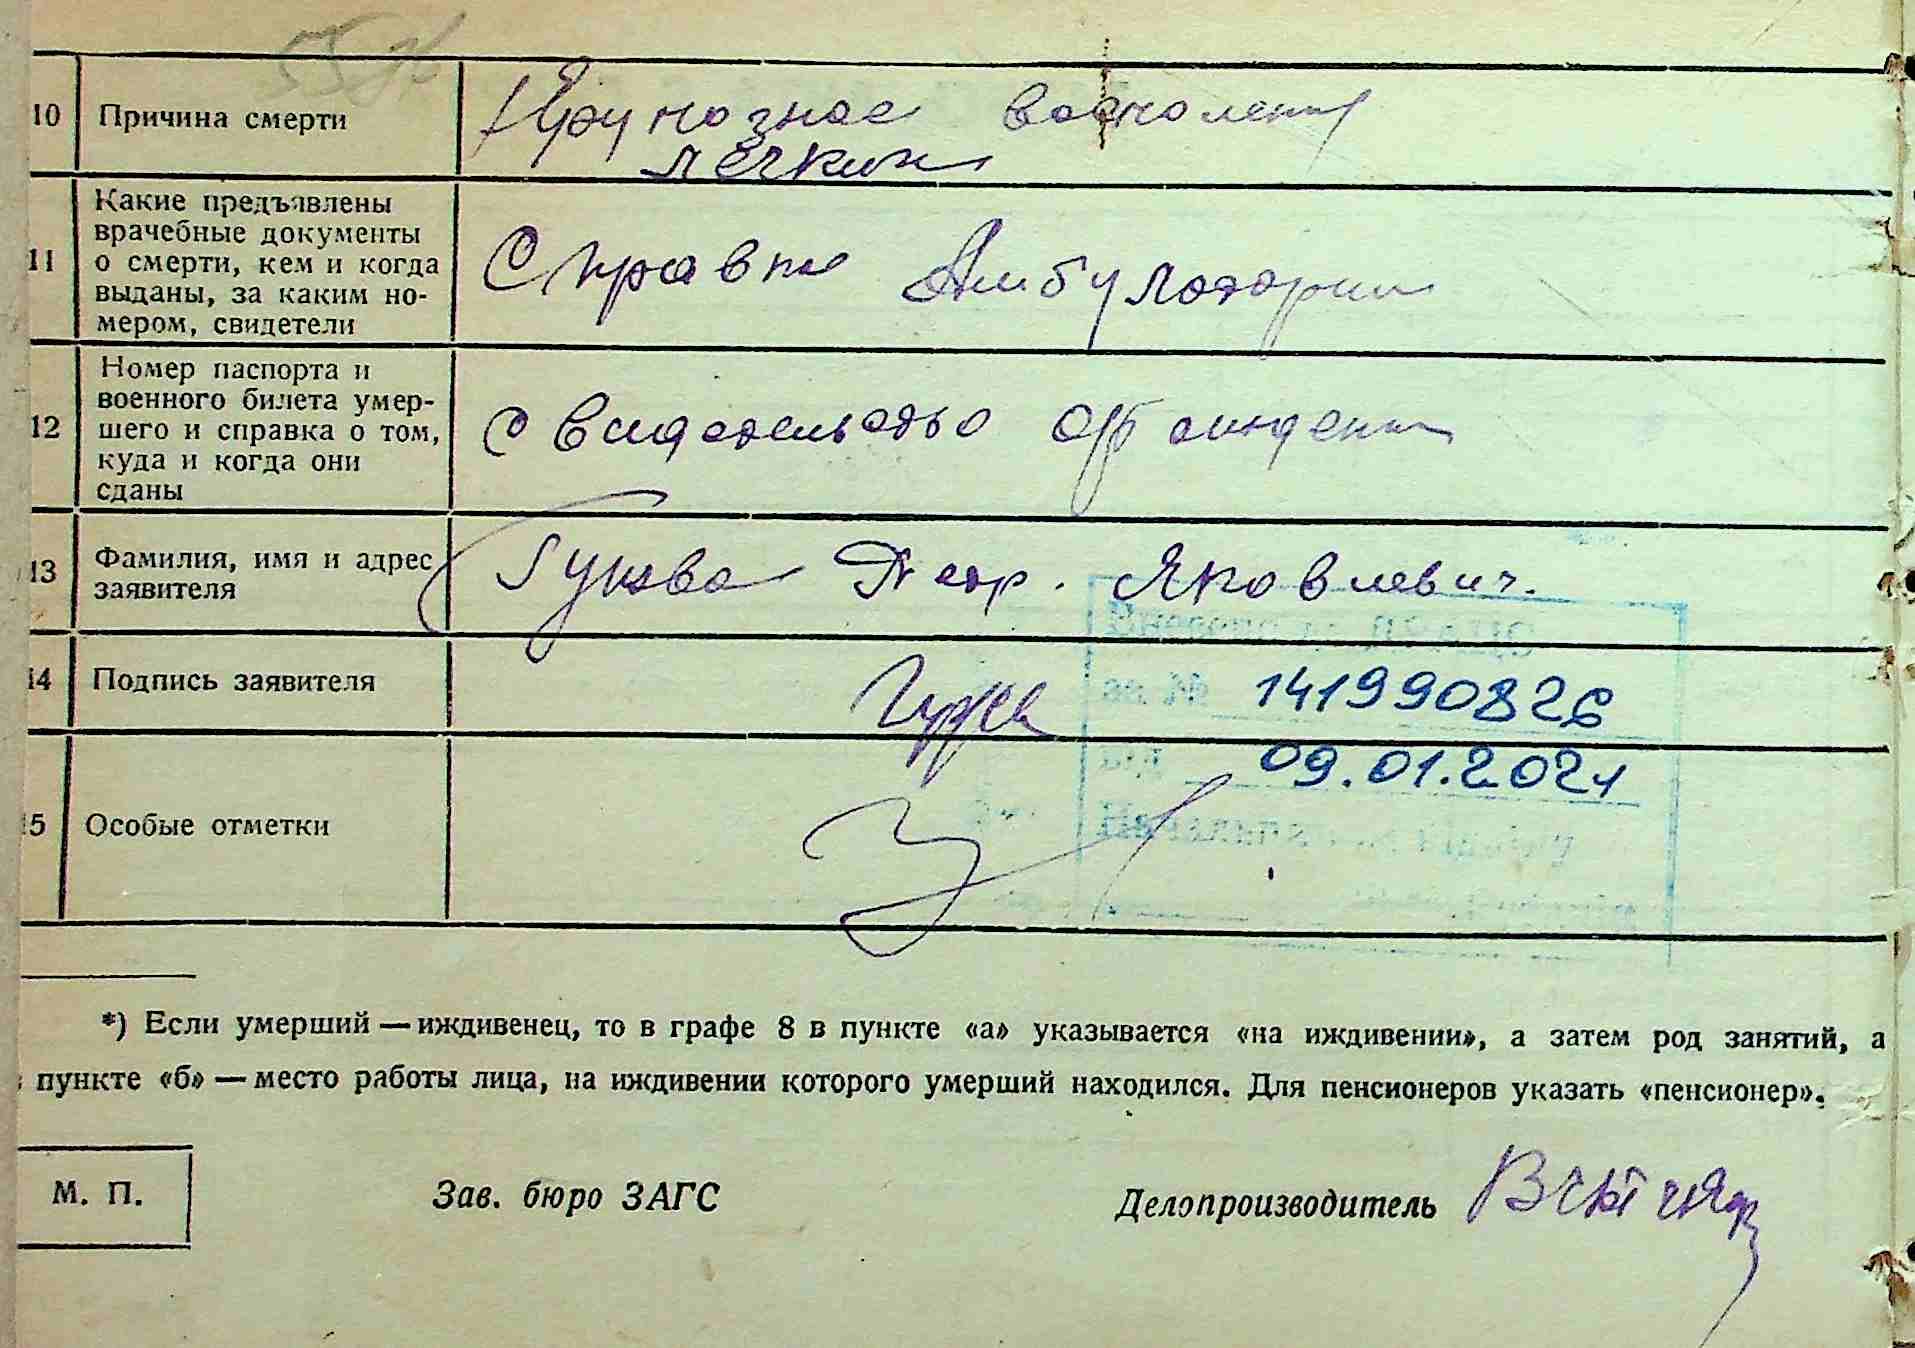 10 Причина смерти Крупозное воспаления
легких
11 Какие предъявлены
врачебные документы
о смерти, кем и когда
выданы, за каким но-
мером, свидетели
Справка Амбулатории
12 Номер паспорта и
военного билета умер-
шего и справка о том,
куда и когда они
сданы
Свидетельство
13 Фамилия, имя и адрес
заявителя
Петр. Яковлевич.
14 Подпись заявителя
за № 141990826
09.01.2021
15 Особые отметки
*) Если умерший — иждивенец, то в графе 8 в пункте «а» указывается «на иждивении», а затем род занятий, а
пункте «б» — место работы лица, на иждивении которого умерший находился. Для пенсионеров указать «пенсионер».
М. П. Зав. бюро ЗАГС Делопроизводитель